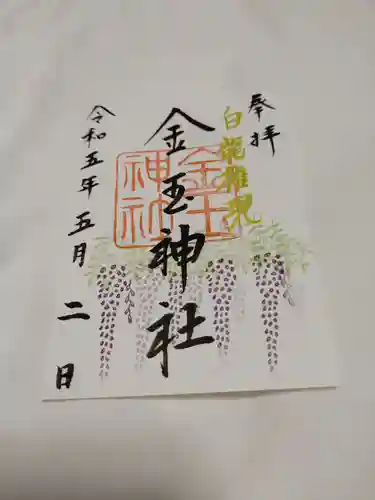 奉拝
白龍権現
金玉神社
金玉
神社
令和五年五月二日